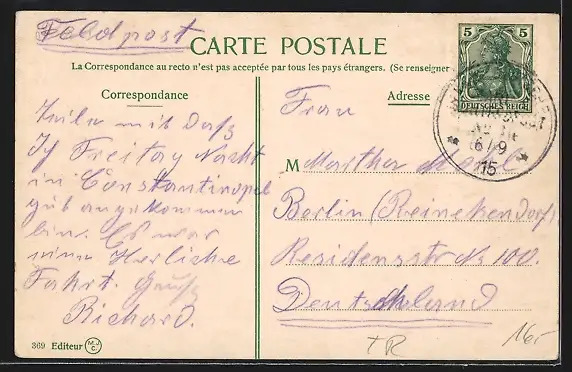 Feldpost
CARTE POSTALE
La Correspondance au recto n'est pas acceptée par tous les pays étrangers. (Se renseigner
Correspondance
Adresse
5 5
DEUTSCHES REICH
6/9
15
Teile mit daß
Ich Freitag Nacht
in Constantinopel
gut angekommen
bin. Es war
eine Herliche
Fahrt. Gruß
Richard.
Frau
M Martha
Berlin (Reinekendorf)
Residensstr No 100.
Deutschland
TR
16-
369 Editeur MJC